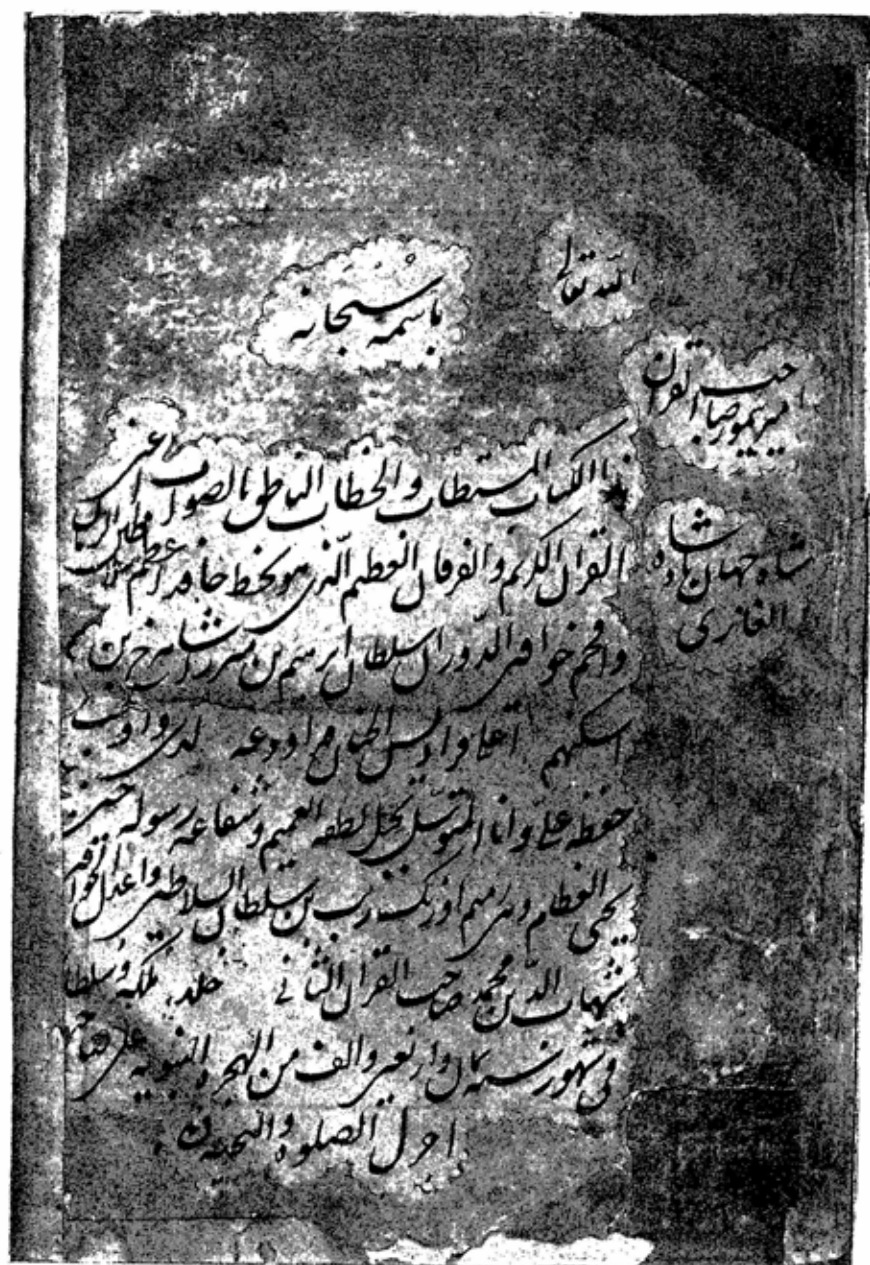 الله تعالی
باسمه سبحانه
امیر تیمور صاحب القران
شاه جهان بادشاه
الغازی
هذا الکتاب المستطاب والخطاب الناطق بالصواب اعنی
القران الکریم والفرقان العظیم الذی هو بخط خاقان اعظم سلاطین الزمان
وافخم خواقین الدوران سلطان ابرهیم بن میرزا شاهرخ بن
اسکنهم اعلی فرادیس الجنان مما اودعه لدی واوجب
حفظه علی وانا المتوسل بحبل لطفه العمیم وشفاعة رسوله حین
یحیی العظام وهی رمیم اورنک زیب بن سلطان السلاطین واعدل الخواقین
شهاب الدین محمد صاحب القران الثانی خلد ملکه وسلطانه
فی شهور سنه ثمان واربعین والف من الهجرة النبویه علی صاحبها
اجزل الصلوة والتحیه